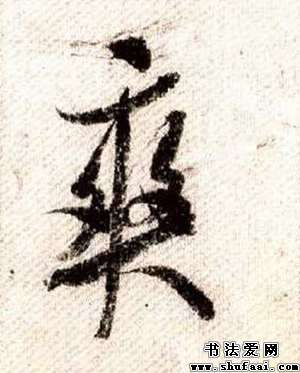 爽
书法爱网
www.shufaai.com